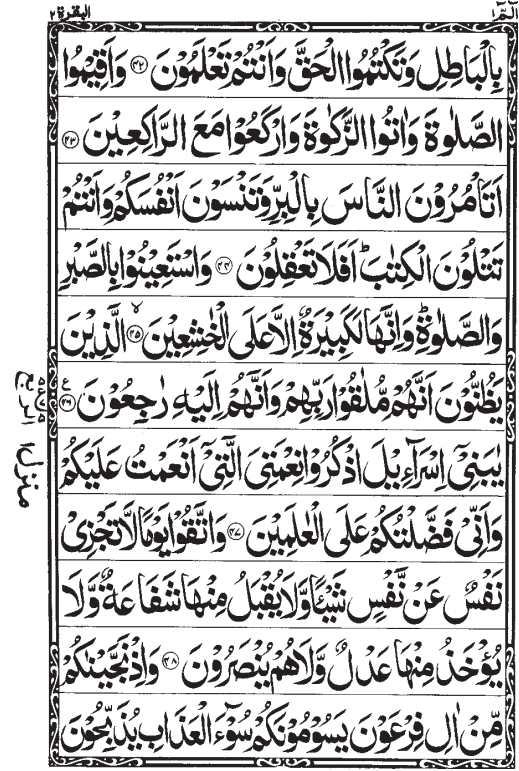 الٓمّٓ ١
البقرة ٢
بِالْبَاطِلِ وَتَكْتُمُوا الْحَقَّ وَاَنْتُمْ تَعْلَمُوْنَ ﴿۴۲﴾ وَاَقِيْمُوا
الصَّلٰوةَ وَاٰتُوا الزَّكٰوةَ وَارْكَعُوْا مَعَ الرَّاكِعِيْنَ ﴿۴۳﴾
اَتَاْمُرُوْنَ النَّاسَ بِالْبِرِّ وَتَنْسَوْنَ اَنْفُسَكُمْ وَاَنْتُمْ
تَتْلُوْنَ الْكِتٰبَ ؕ اَفَلَا تَعْقِلُوْنَ ﴿۴۴﴾ وَاسْتَعِيْنُوْا بِالصَّبْرِ
وَالصَّلٰوةِ ؕ وَاِنَّهَا لَكَبِيْرَةٌ اِلَّا عَلَى الْخٰشِعِيْنَ ﴿۴۵﴾ ۙ الَّذِيْنَ
يَظُنُّوْنَ اَنَّهُمْ مُّلٰقُوْا رَبِّهِمْ وَاَنَّهُمْ اِلَيْهِ رٰجِعُوْنَ ﴿۴۶﴾
يٰبَنِيْٓ اِسْرَآءِيْلَ اذْكُرُوْا نِعْمَتِيَ الَّتِيْٓ اَنْعَمْتُ عَلَيْكُمْ
وَاَنِّيْ فَضَّلْتُكُمْ عَلَى الْعٰلَمِيْنَ ﴿۴۷﴾ وَاتَّقُوْا يَوْمًا لَّا تَجْزِيْ
نَفْسٌ عَنْ نَّفْسٍ شَيْـًٔا وَّلَا يُقْبَلُ مِنْهَا شَفَاعَةٌ وَّلَا
يُؤْخَذُ مِنْهَا عَدْلٌ وَّلَا هُمْ يُنْصَرُوْنَ ﴿۴۸﴾ وَاِذْ نَجَّيْنٰكُمْ
مِّنْ اٰلِ فِرْعَوْنَ يَسُوْمُوْنَكُمْ سُوْٓءَ الْعَذَابِ يُذَبِّحُوْنَ
الربع
منزل ١